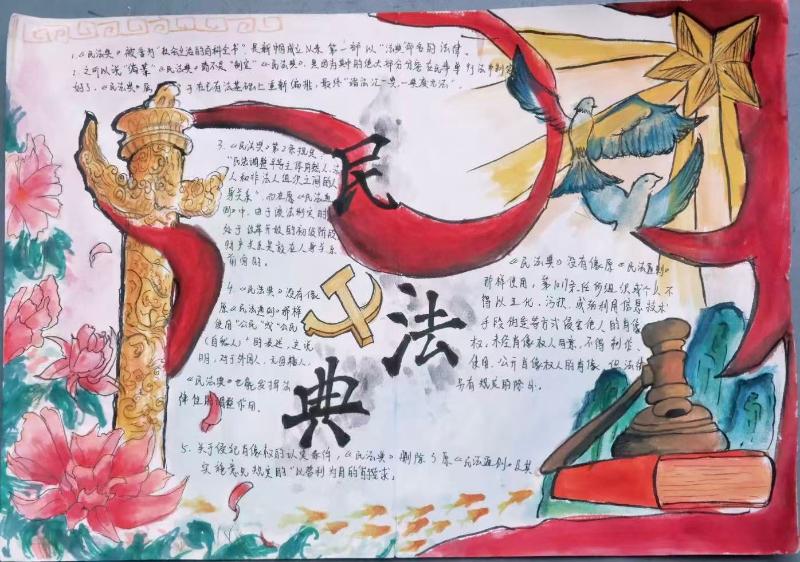 1.《民法典》被誉为"社会生活的百科全书"，是新中国成立以来第一部以"法典"命名的法律。
2.之所以说"编纂"《民法典》而不是"制定"《民法典》，是因为其中的绝大部分内容在民事单行法中制定
好了。《民法典》属于在已有法基础上重新编排，最终"诸法汇一典，一典废九法"。
3.《民法典》第2条规定：
"民法调整平等主体自然人、法
人和非法人组织之间的人
身关系"，而在原《民法通
则》中，由于该法制定时
处于改革开放的初级阶段
财产关系是放在人身关系
前面的。
民
法
典
4.《民法典》没有像
原《民法通则》那样
使用"公民"或"公民
（自然人）"的表述，这说
明，对于外国人、无国籍人，
《民法典》也能发挥法
律位阶调整作用。
《民法典》没有像原《民法通则》
那样使用，第1019条任何组织或个人不
得以丑化、污损，或利用信息技术
手段伪造等方式侵害他人的肖像
权。未经肖像权人同意，不得制作、
使用、公开肖像权人的肖像，但法律
另有规定的除外。
5.关于侵犯肖像权的认定条件，《民法典》删除了原《民法通则》及其
实施意见规定的"以营利为目的"的要求；